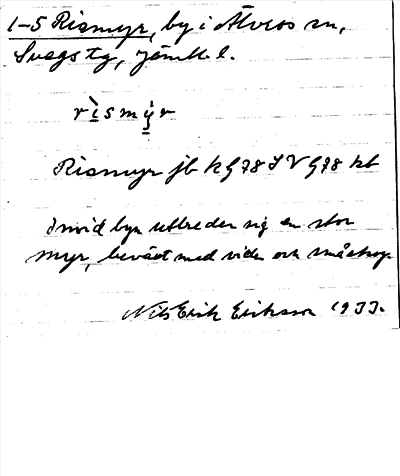 1-5 Rismyr, by i Älvros sn,
Svegs tg, Jämtl. l.
rìsmýr
Rismyr jb kG78 S V G78 kb
Invid byn utbreder sig en stor
myr, beväxt med viden och småskog.
Nils Erik Eriksson 1933.